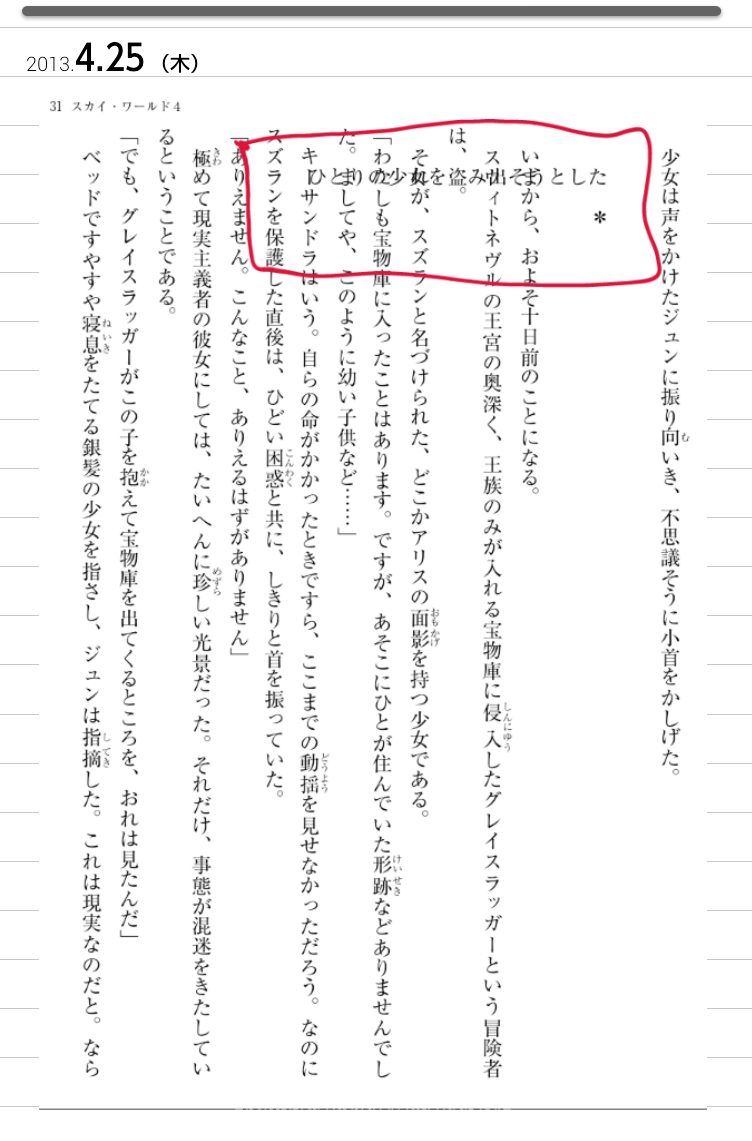 2013.4.25（木）
31 スカイ・ワールド4
少女は声をかけたジュンに振り向いき、不思議そうに小首をかしげた。
＊
いまから、およそ十日前のことになる。
スヴィトネヴルの王宮の奥深く、王族のみが入れる宝物庫に侵入したグレイスラッガーという冒険者
は、
ひとりの少女を盗み出そうとした
。
それが、スズランと名づけられた、どこかアリスの面影を持つ少女である。
「わたしも宝物庫に入ったことはあります。ですが、あそこにひとが住んでいた形跡などありませんでし
た。ましてや、このように幼い子供など……」
キーサンドラはいう。自らの命がかかったときですら、ここまでの動揺を見せなかっただろう。なのに
スズランを保護した直後は、ひどい困惑と共に、しきりと首を振っていた。
「ありえません。こんなこと、ありえるはずがありません」
極めて現実主義者の彼女にしては、たいへんに珍しい光景だった。それだけ、事態が混迷をきたしてい
るということである。
「でも、グレイスラッガーがこの子を抱えて宝物庫を出てくるところを、おれは見たんだ」
ベッドですやすや寝息をたてる銀髪の少女を指さし、ジュンは指摘した。これは現実なのだと。なら